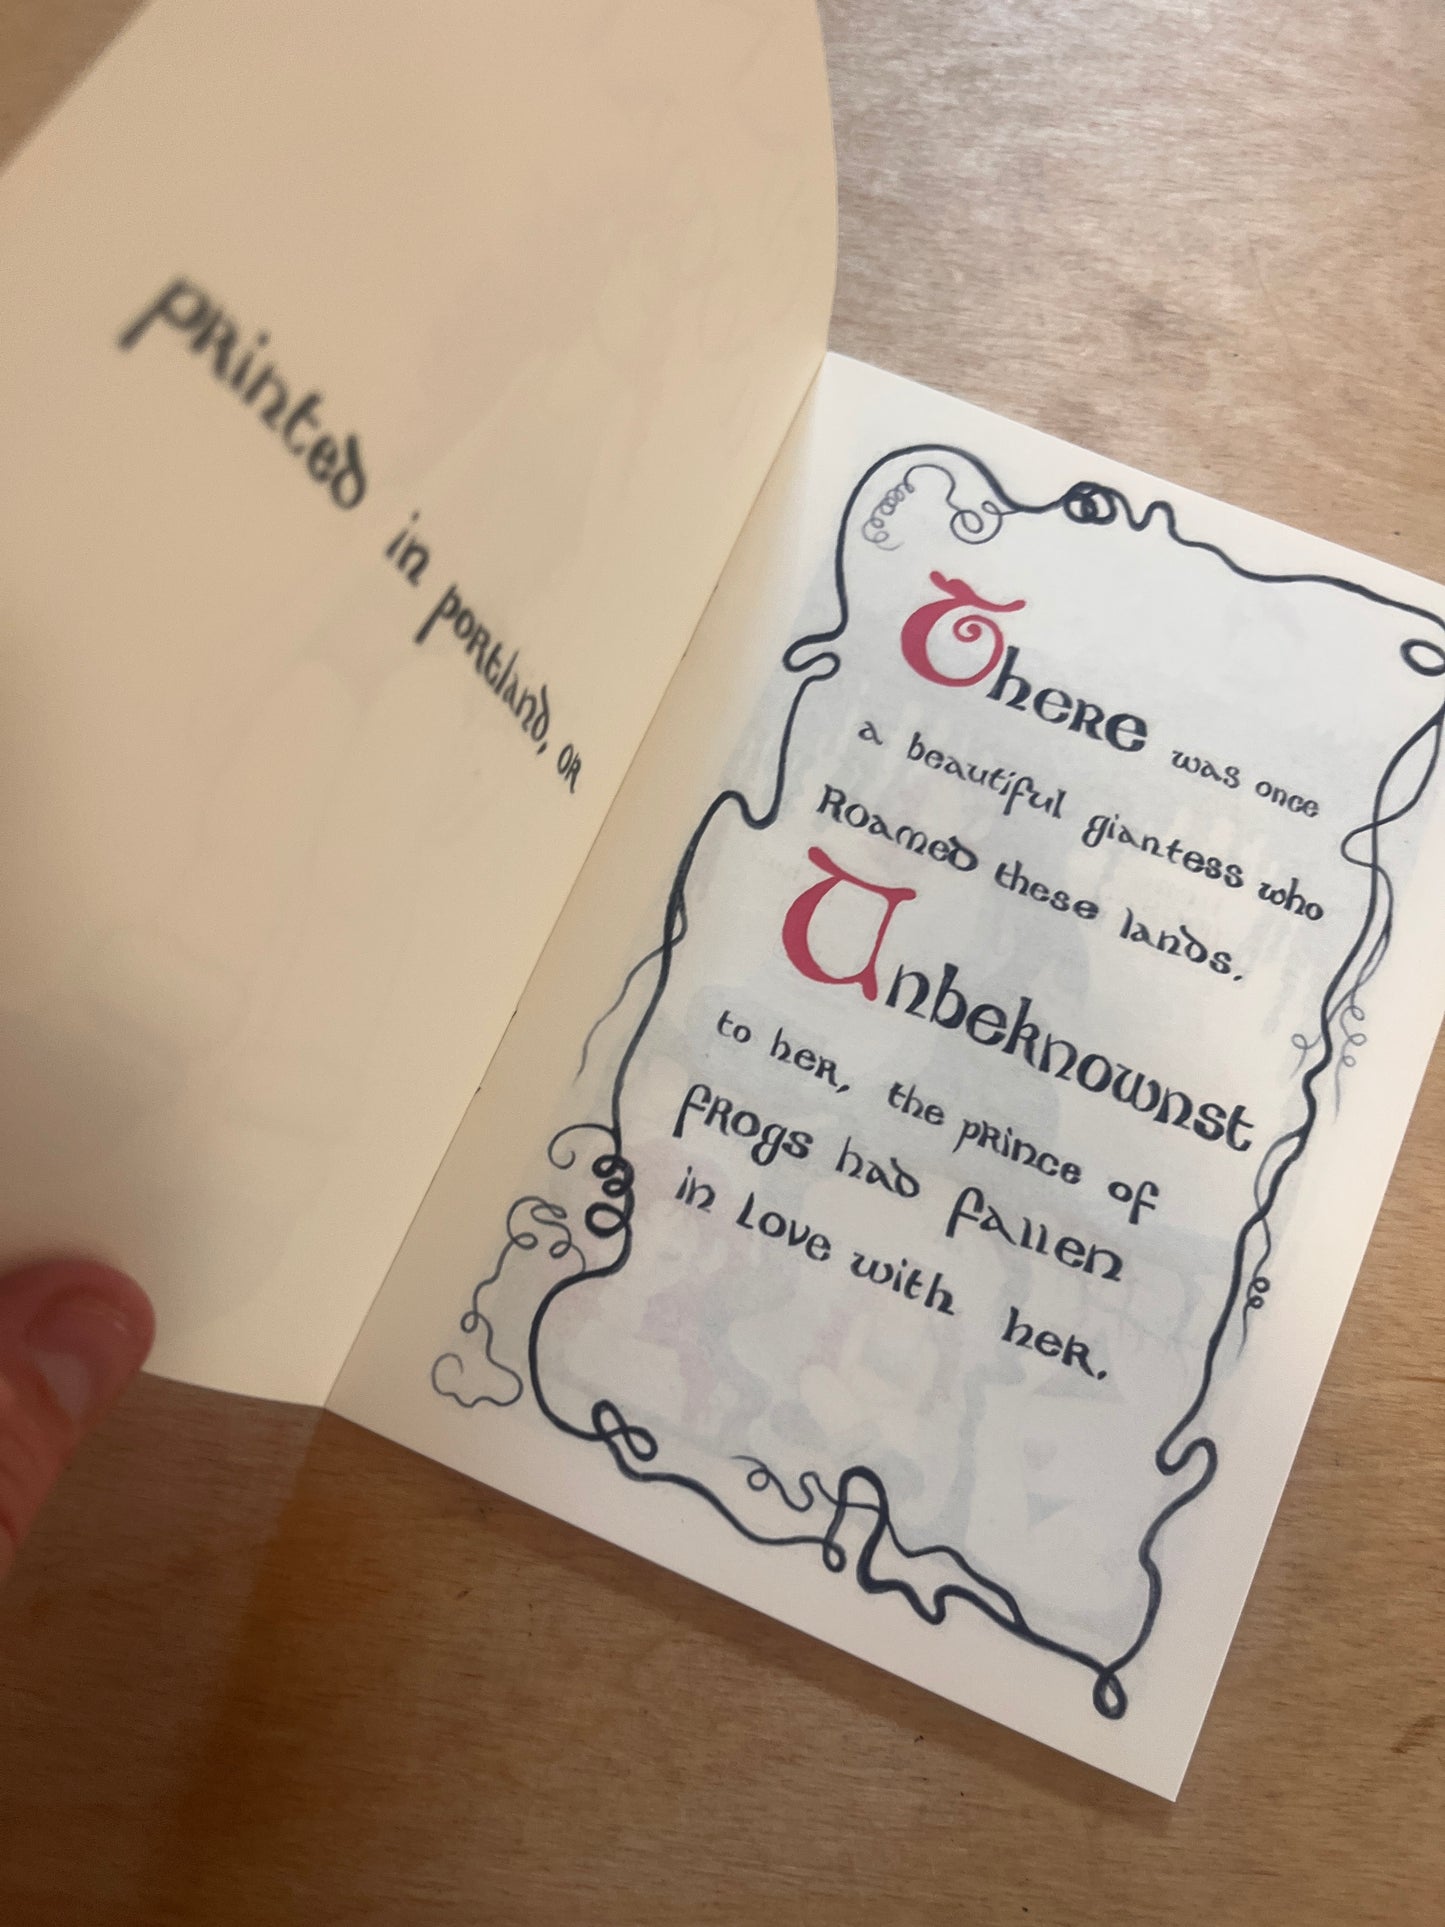 printed in portland, OR
There was once
a beautiful giantess who
Roamed these lands.
Unbeknownst
to her, the prince of
frogs had fallen
in love with her.